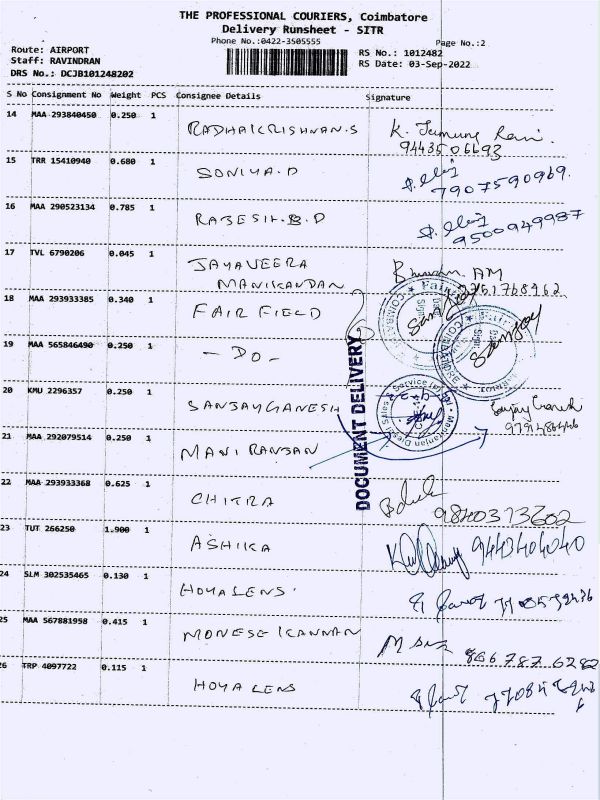 THE PROFESSIONAL COURIERS, Coimbatore
Delivery Runsheet - SITR
Phone No.:0422-3505555
Page No.:2
Route: AIRPORT
Staff: RAVINDRAN
DRS No.: DCJB101248202
RS No.: 1012482
RS Date: 03-Sep-2022
S No Consignment No Weight PCS Consignee Details Signature
14 MAA 293840450 0.250 1 RADHAKRISHNAN.S
9443506693
15 TRR 15410940 0.680 1 SONIYA.D
7907590969.
16 MAA 290523134 0.785 1 RAJESH.B.D
9500949987
17 TVL 6790206 0.045 1 JAYAVEERA
MANIKANDAN
18 MAA 293933385 0.340 1 FAIR FIELD
Sanjay
19 MAA 565846490 0.250 1 - DO -
Sanjay
DOCUMENT DELIVERY
20 KMU 2296357 0.250 1 SANJAYGANESH
21 MAA 292079514 0.250 1 MANI RANJAN
22 MAA 293933368 0.625 1 CHITRA
9840373602
23 TUT 266250 1.900 1 ASHIKA
9443404040
24 SLM 302535465 0.130 1 HOYA LENS
25 MAA 567881958 0.415 1 MONESE KANNAN
866 787 6282
26 TRP 4097722 0.115 1 HOYA LENS